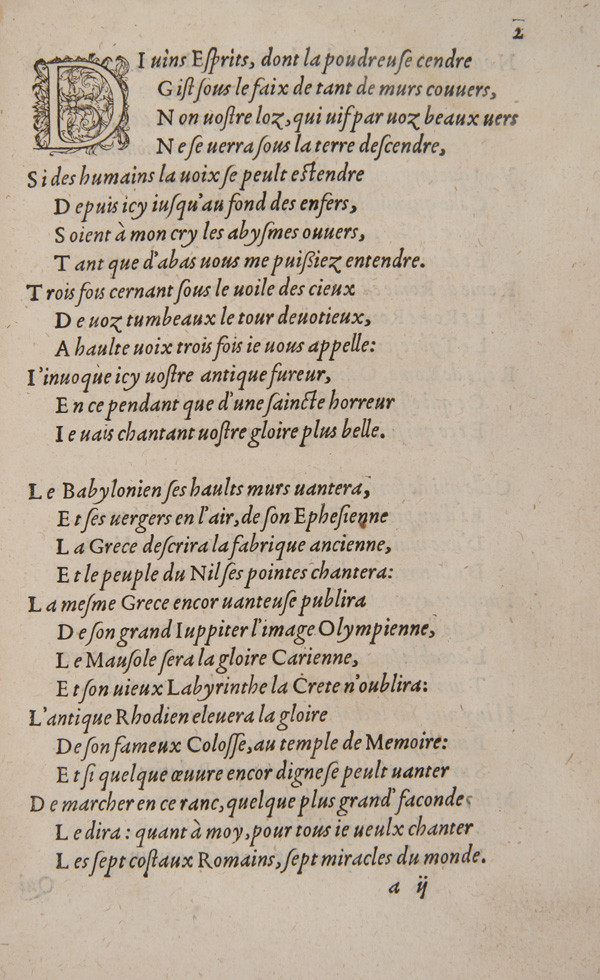 2
DIuins Eſprits, dont la poudreuſe cendre
Giſt ſous le faix de tant de murs couuers,
Non uoſtre loz, qui uif par uoz beaux uers
Ne ſe uerra ſous la terre deſcendre,
Si des humains la uoix ſe peult eſtendre
Depuis icy iuſqu'au fond des enfers,
Soient à mon cry les abyſmes ouuers,
Tant que d'abas uous me puißiez entendre.
Trois fois cernant ſous le uoile des cieux
De uoz tumbeaux le tour deuotieux,
A haulte uoix trois fois ie uous appelle:
I'inuoque icy uoſtre antique fureur,
En ce pendant que d'une ſaincte horreur
Ie uais chantant uoſtre gloire plus belle.
Le Babylonien ſes haults murs uantera,
Et ſes uergers en l'air, de ſon Epheſienne
La Grece deſcrira la fabrique ancienne,
Et le peuple du Nil ſes pointes chantera:
La meſme Grece encor uanteuſe publira
De ſon grand Iuppiter l'image Olympienne,
Le Mauſole ſera la gloire Carienne,
Et ſon uieux Labyrinthe la Crete n'oublira:
L'antique Rhodien eleuera la gloire
De ſon fameux Coloſſe, au temple de Memoire:
Et ſi quelque œuure encor digne ſe peult uanter
De marcher en ce ranc, quelque plus grand' faconde
Le dira: quant à moy, pour tous ie ueulx chanter
Les ſept coſtaux Romains, ſept miracles du monde.
a ij